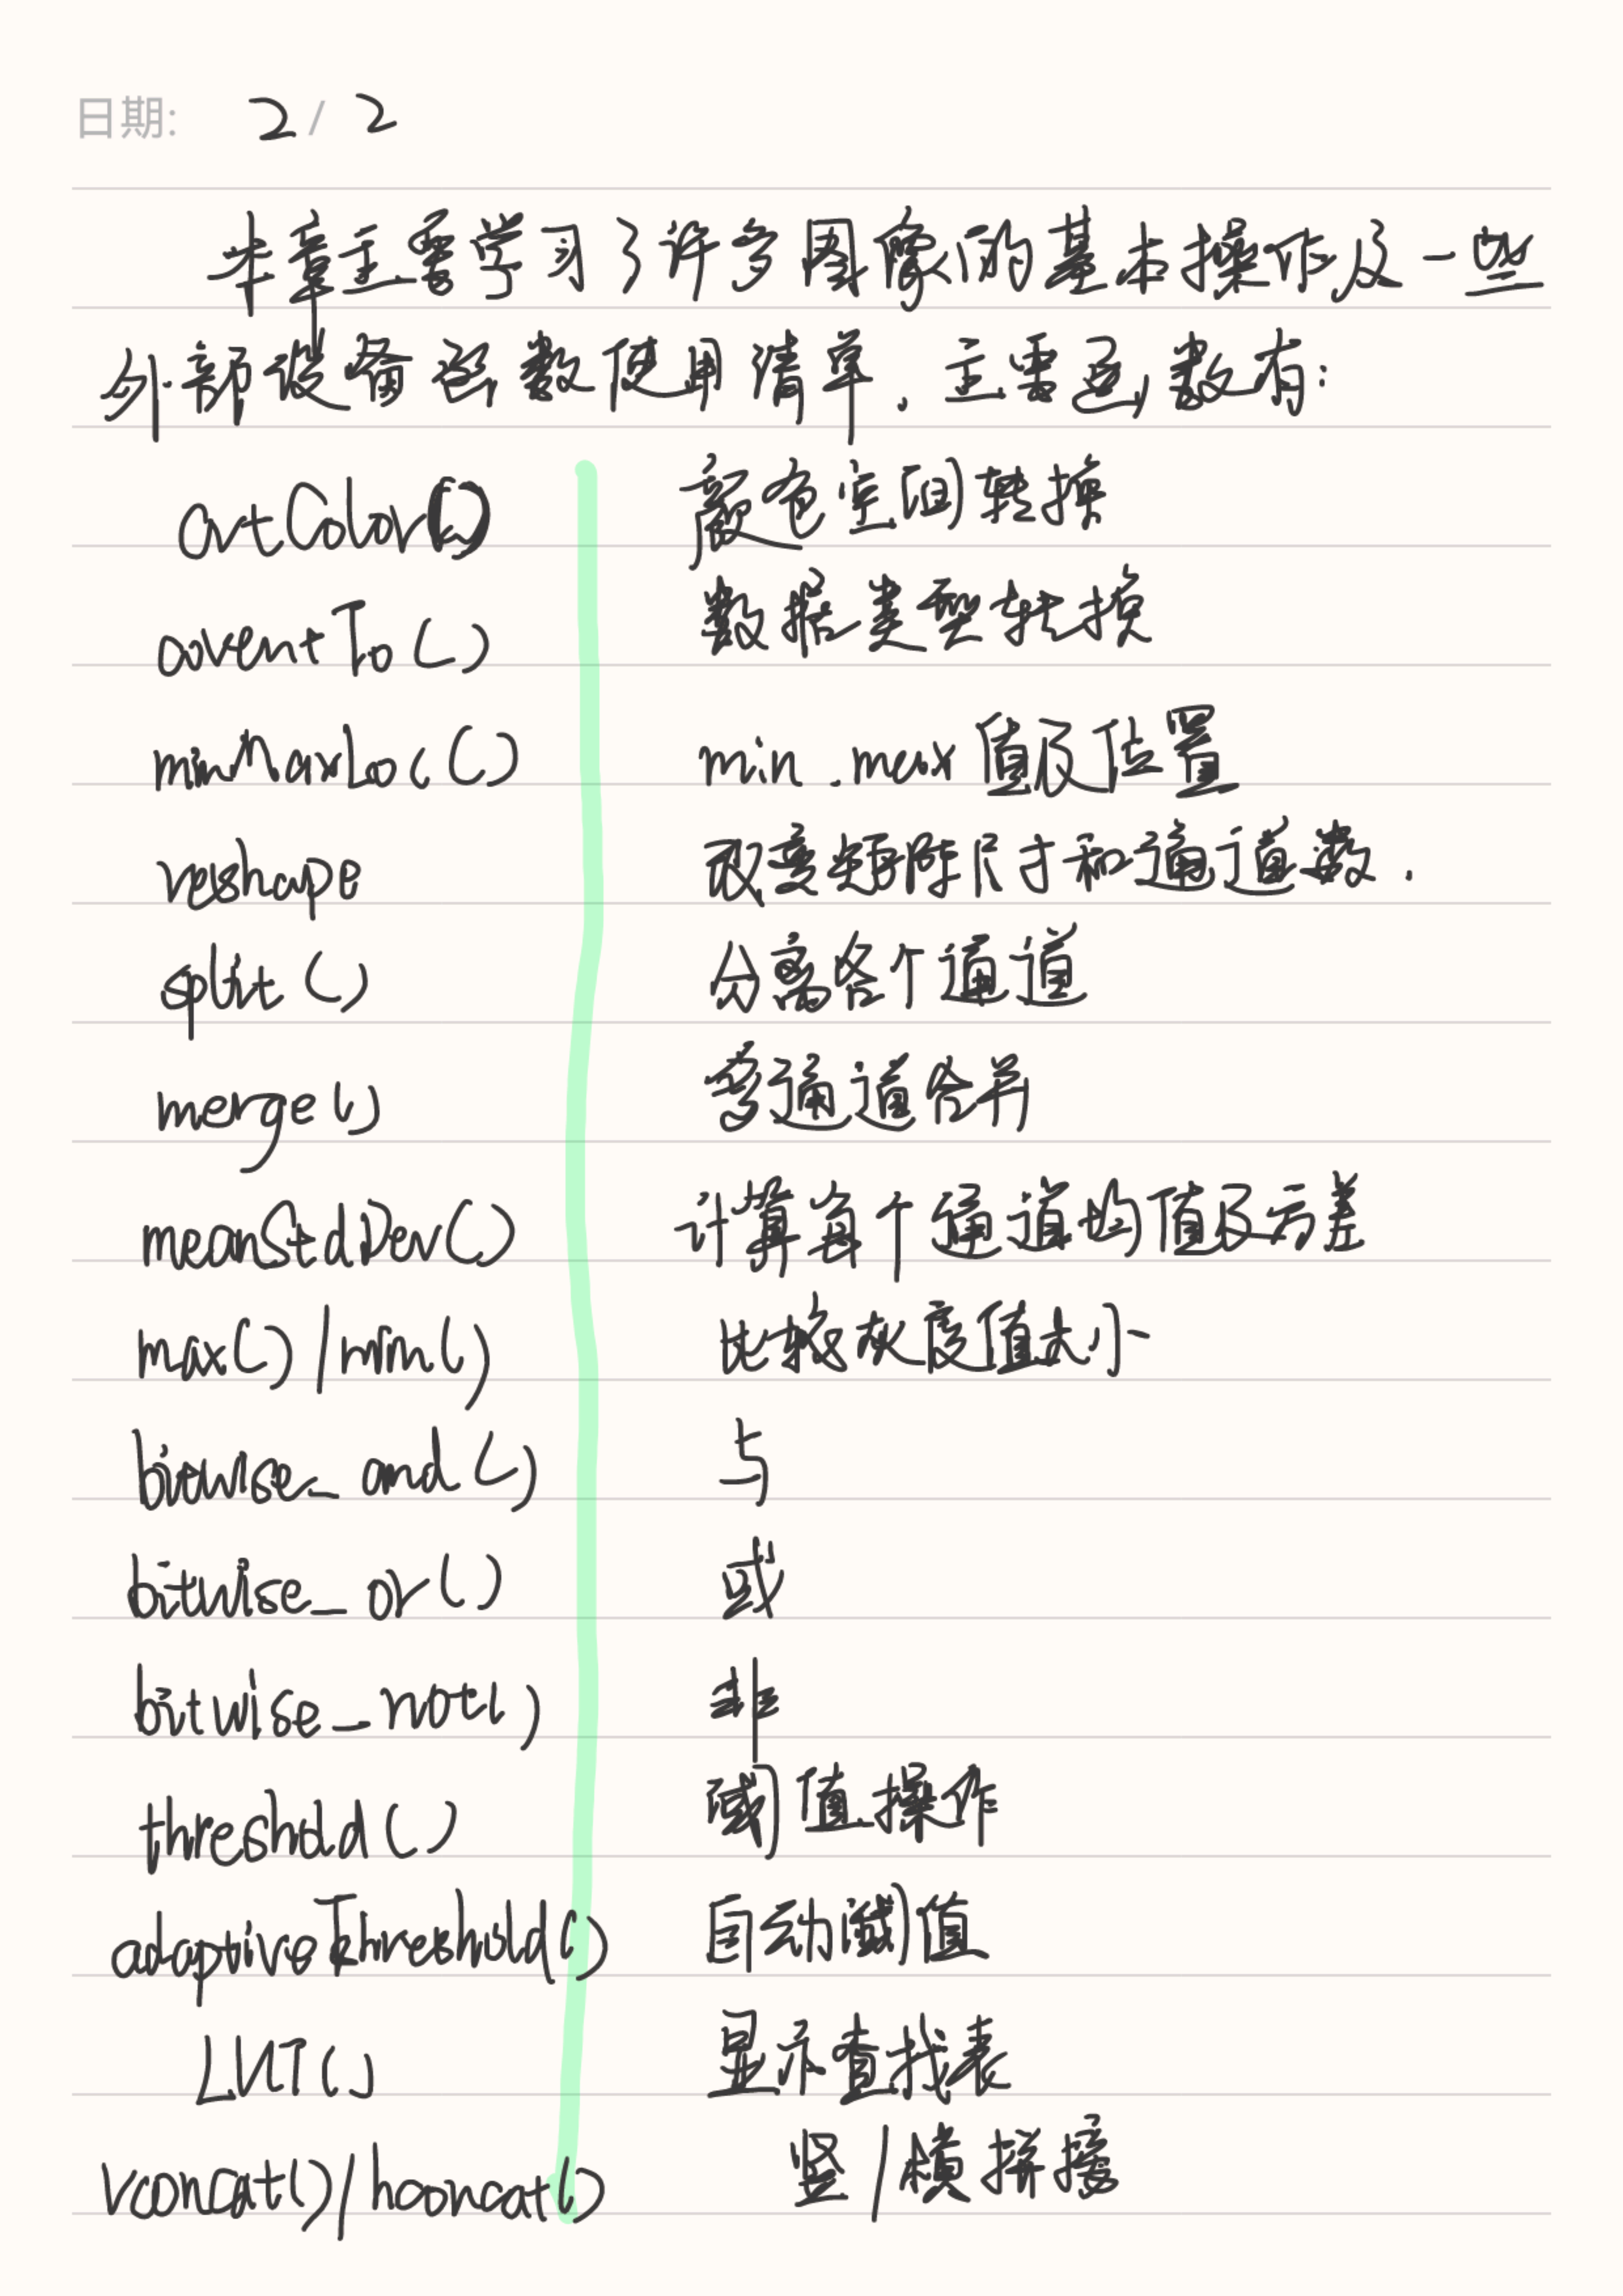 日期: 2 / 2
本章主要学习了许多图像的基本操作及一些
外部设备函数使用清单. 主要函数有:
cvtColor() 颜色空间转换
conventTo() 数据类型转换
minMaxLoc() min.max值及位置
reshape 改变矩阵尺寸和通道数.
split() 分离各个通道
merge() 多通道合并
meanStdDev() 计算每个通道均值及方差
max()/min() 比较灰度值大小
bitwise_and() 与
bitwise_or() 或
bitwise_not() 非
threshold() 阈值操作
adaptiveThreshold() 自动阈值
LUT() 显示查找表
vconcat()/hconcat() 竖/横拼接